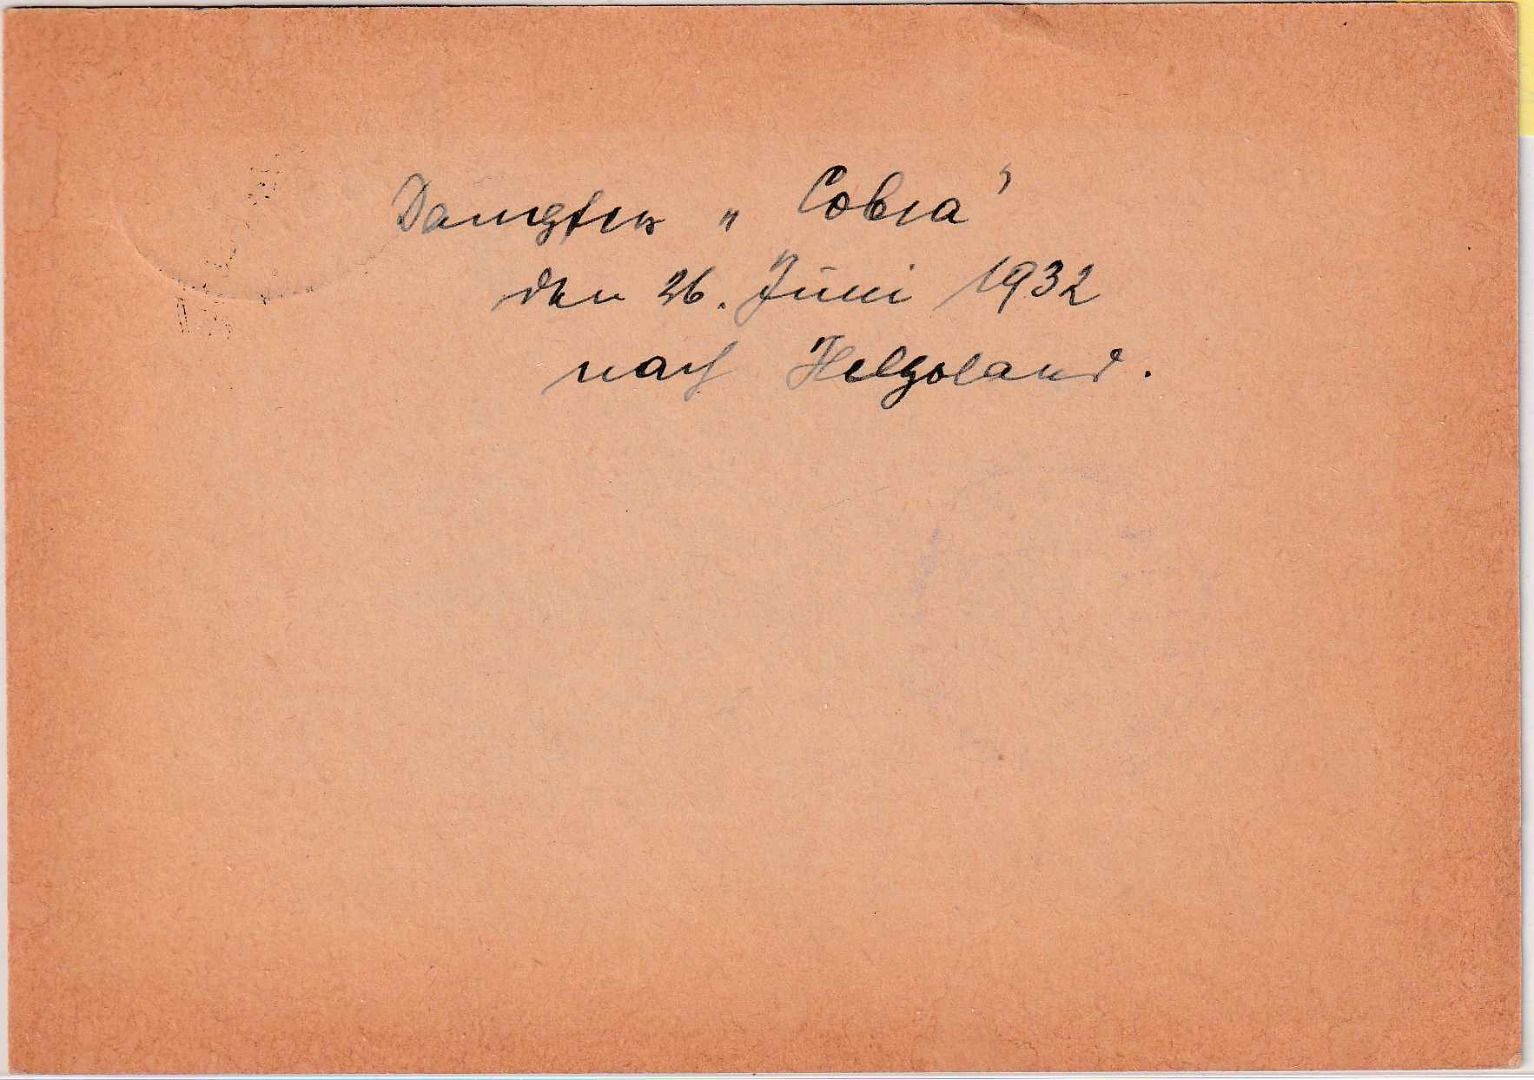 Dampfer „Cobra"
den 26. Juni 1932
nach Helgoland.